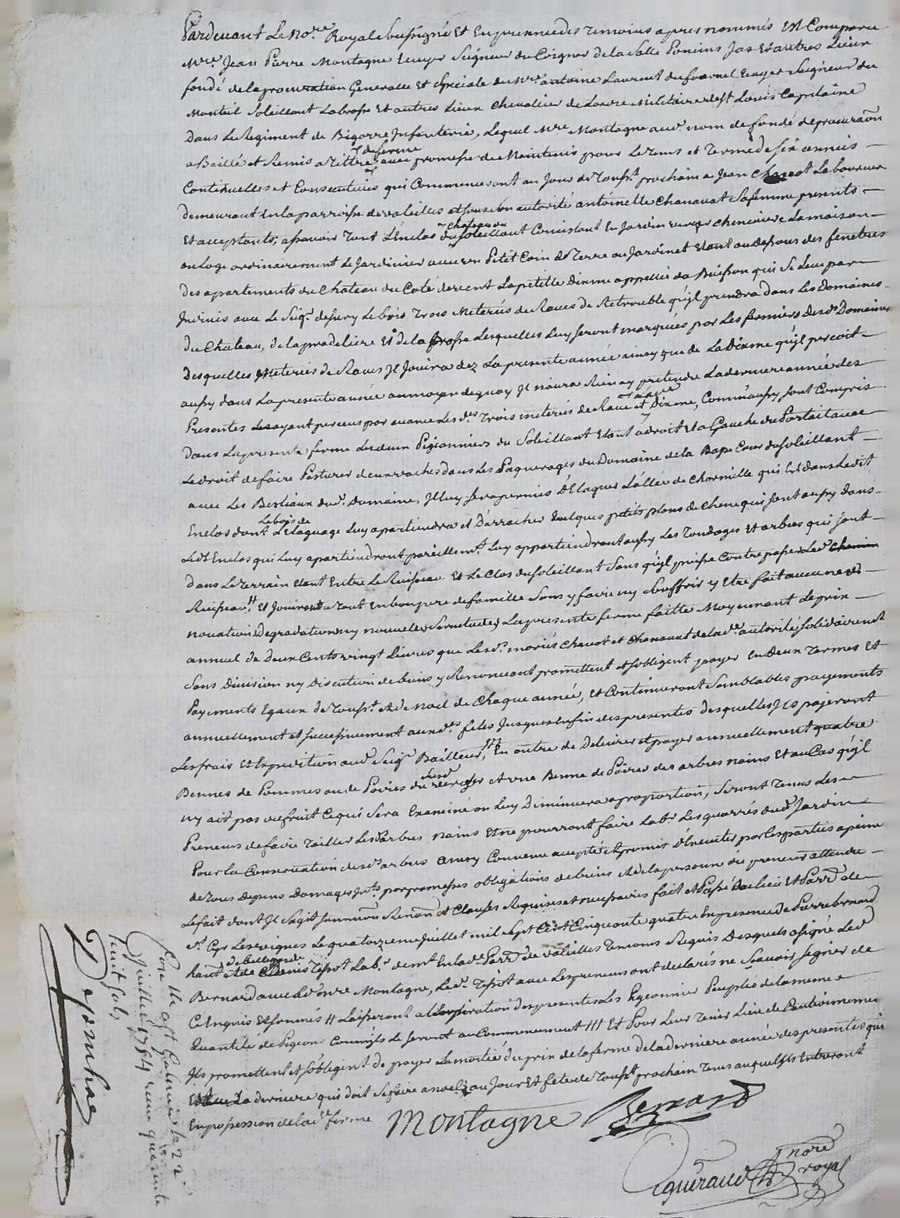 Pardevant Le No.re Royal Soussigné Et En presence des Temoins apres nommés Est Comparu
M.re Jean Pierre Montagne Ecuyer Seigneur du Poignet de La Salle Poncins Jas Et autres Lieux
fondé de la procuration Generalle Et Speciale de M.re antoine Laurent du Ecuyer Seigneur du
Monteil Soleillant La brosse Et autres Lieux Chevalier de Lordre Militaire de St Louis Capitaine
Dans Le Regiment de Bigorre Infanterie, Lequel M.re Montagne aud. nom de fondé de procuration
a Baillé et Remis a Tittre de ferme avec promesse de Maintenir pour Le Tems et Terme de Six années
Continuelles et Consecutives qui Commenceront au Jour de Touss.t prochain a Jean Laboureur
demeurant En la parroisse de Valeilles et sous Son autorité antoinette Chanavat Sa femme presents
Et acceptants, assavoir Tout L'enclos du chateau du Soleillant Consistant En Jardin verger cheneviere La maison
ou Loge ordinairement Le Jardinier avec un Petit Coin de Terre au Jardinet Etant au dessous des fenêtres
des apartements du Chateau du Coté de La petitte Dixme appellée du Buisson qui Se Leve par
Indivis avec Le Seig.r de Sury Le bois Trois Meteries de Raves de Retrouble qu'il prendra dans Les Domaines
du Chateau, de La pradeliere Et de La Lesquelles Luy Seront marqués par Les fermiers desd. Domaines
Desquelles Meteries de Raves Il Jouira dez La presente année ainsy que de La Dixme qu'il percoit
aussy dans La presente année au moyen de quoy Il n'aura Rien a y pretendre La derniere année des
Presentes Les ayant perceus par avance Les d. Trois meteries de Rave et Dixme, Comm'aussy Sont Compris
Dans La presente ferme Les deux Pigeonniers du Soleillant Etant a droit Et a Gauche du Portail avec
Le droit de faire Pasturer deux vaches dans Les Paquerages du Domaine de La Basse Cour du Soleillant
avec Les Bestiaux dud. Domaine, Il Luy Sera permis D'Elaguer L'allée de Charmille qui Est dans Ledit
Enclos dont Le bois de L'elaguage Luy apartiendra et D'arracher quelques petits plans de Chene qui Sont aussy dans
Le d.t Enclos qui Luy apartiendront pareillem.t Luy appartiendront aussy Les Tondages Et arbres qui Sont
dans Le Terrain Etant Entre Le Ruisseau Et Le Clos du Soleillant Sans qu'il puisse Couper
Ruisseau, Et Jouiront a Tout En bon pere de famille Sans y faire ny Souffrir y Etre fait aucune
novation Degradation ny nouvelle Servitude, La presente ferme faitte Moyennant Le prix
annuel de deux Cents vingt Livres que Lesd. mariés et Chanavat de lad.e autorité Solidairement
Sans Division ny Discution de biens y Renoncant promettent et s'obligent payer En deux Termes Et
Payements Egaux de Touss.t et de Noel de Chaque année, Et Continueront Semblables payements
annuellement et Successivement auxd.es fetes Jusques En fin des presentes desquelles Ils payeront
Les frais Et Expedition aud. Seig.r Bailleur, En outre de Delivrer et payer annuellement quatre
Bennes de Pommes ou de Poires du verger et une Benne de Poires des arbres nains Et au Cas qu'il
n'y ait pas du fruit Ce qui Sera Examiné on Luy Diminuera a proportion, Seront Tenus Les
Preneurs de faire Tailler Les arbres nains Et ne pourront faire Lab.r Les quarrés du d. Jardin
Pour La Conservation desd. arbres ainsy Convenu accepté Et promis d'executer par Les parties a peine
de Tous Depens Domages Int.s par promesses obligations de biens et de La personne du preneur attendu
Le fait dont Il Sagit Soumissions Renon.s et Clauses Requises et necessaires fait Et Passé au Lieu Et Parr.e de
St Cyr Les vignes Le quatorze Juillet mil Sept Cent Cinquante quatre En presence de Pierre bernard
habitant de Bellegarde et Denis Lab.r dem.t En lad. Parr.e de Valeilles Temoins Requis Desquels a Signé Led.
Bernard avec Led. M.re Montagne, Led. avec Les preneurs ont declarés ne Scavoir Signer de
Ce Enquis Et Sommés Laisseront a L'expiration des presentes Les Pigeonniers Peuplés de La meme
Quantité de Pigeons Comm'ils Le Seront au Commencement Et Pour Leur Tenir Lieu de Cautionnement
Ils promettent et s'obligent de payer La moitié du prix de La ferme de La derniere année des presentes qui
La derniere qui doit Se faire a Noel au Jour Et fete de Touss.t prochain Tems auquel Ils Entreront
En possession de La d.e ferme
Montagne Bernard
Aguiraud No.re royal
Con.lé a St Galmier Le 22
Juillet 1754 reçu quarante
huit Sols
Dejonhac